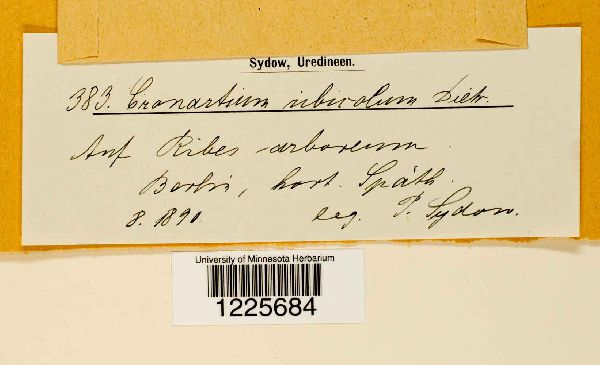 Sydow, Uredineen.
383. Cronartium ribicolum Dietr.
Auf Ribes arboreum.
Berlin, hort. Späth.
8. 1890. leg. P. Sydow.
University of Minnesota Herbarium
1225684